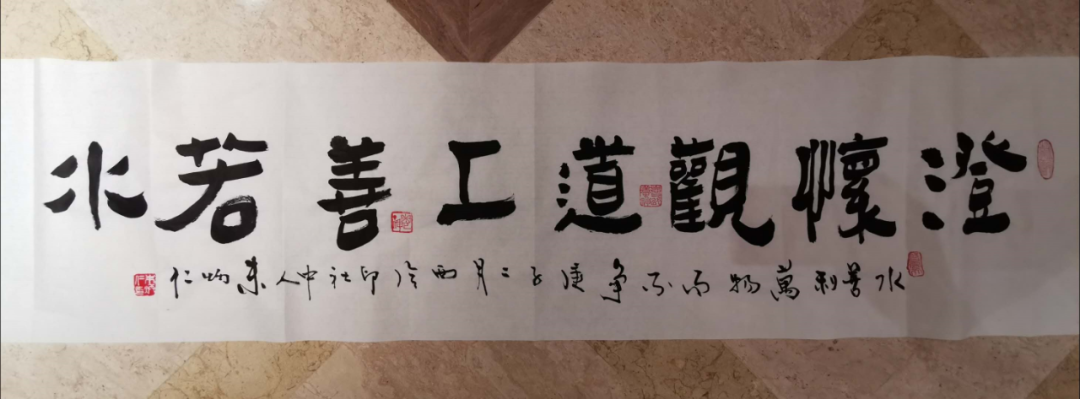 澄懷觀道上善若水
水善利萬物而不爭庚子二月西泠印社中人朱炳仁